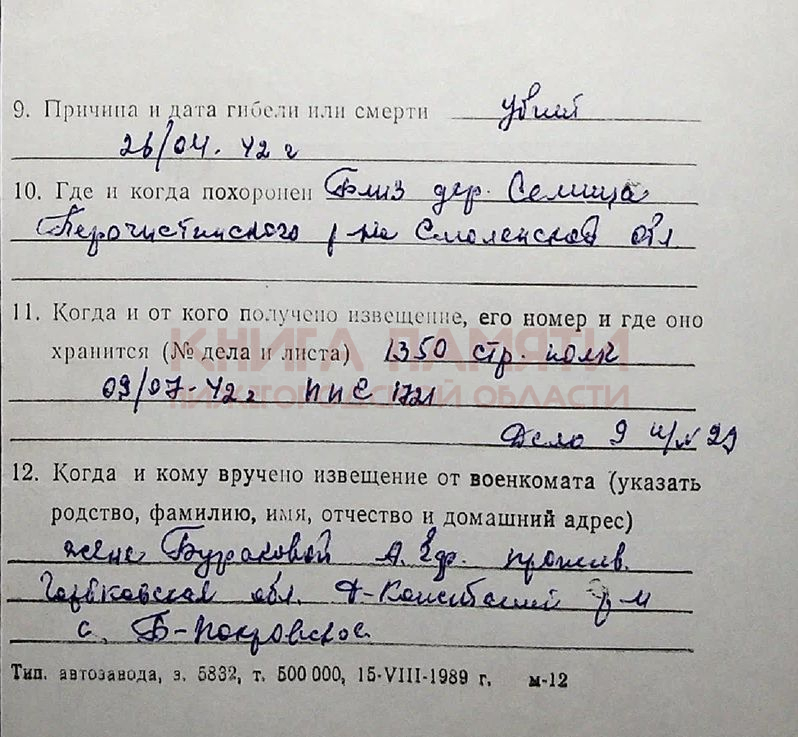 9. Причина и дата гибели или смерти убит
26/04. 42 г
10. Где и когда похоронен Близ дер. Селища
р-на Смоленской обл
11. Когда и от кого получено извещение, его номер и где оно
КНИГА ПАМЯТИ
хранится (№ дела и листа) 1350 стр. полк
09/07-42 г ППС 1721
НИЖЕГОРОДСКОЙ ОБЛАСТИ
Дело 9 29
12. Когда и кому вручено извещение от военкомата (указать
родство, фамилию, имя, отчество и домашний адрес)
жене Бураковой А. прожив.
Горьковская обл. р-н
с. Б-Покровское
Тип. автозавода, з. 5832, т. 500 000, 15-VIII-1989 г. м-12